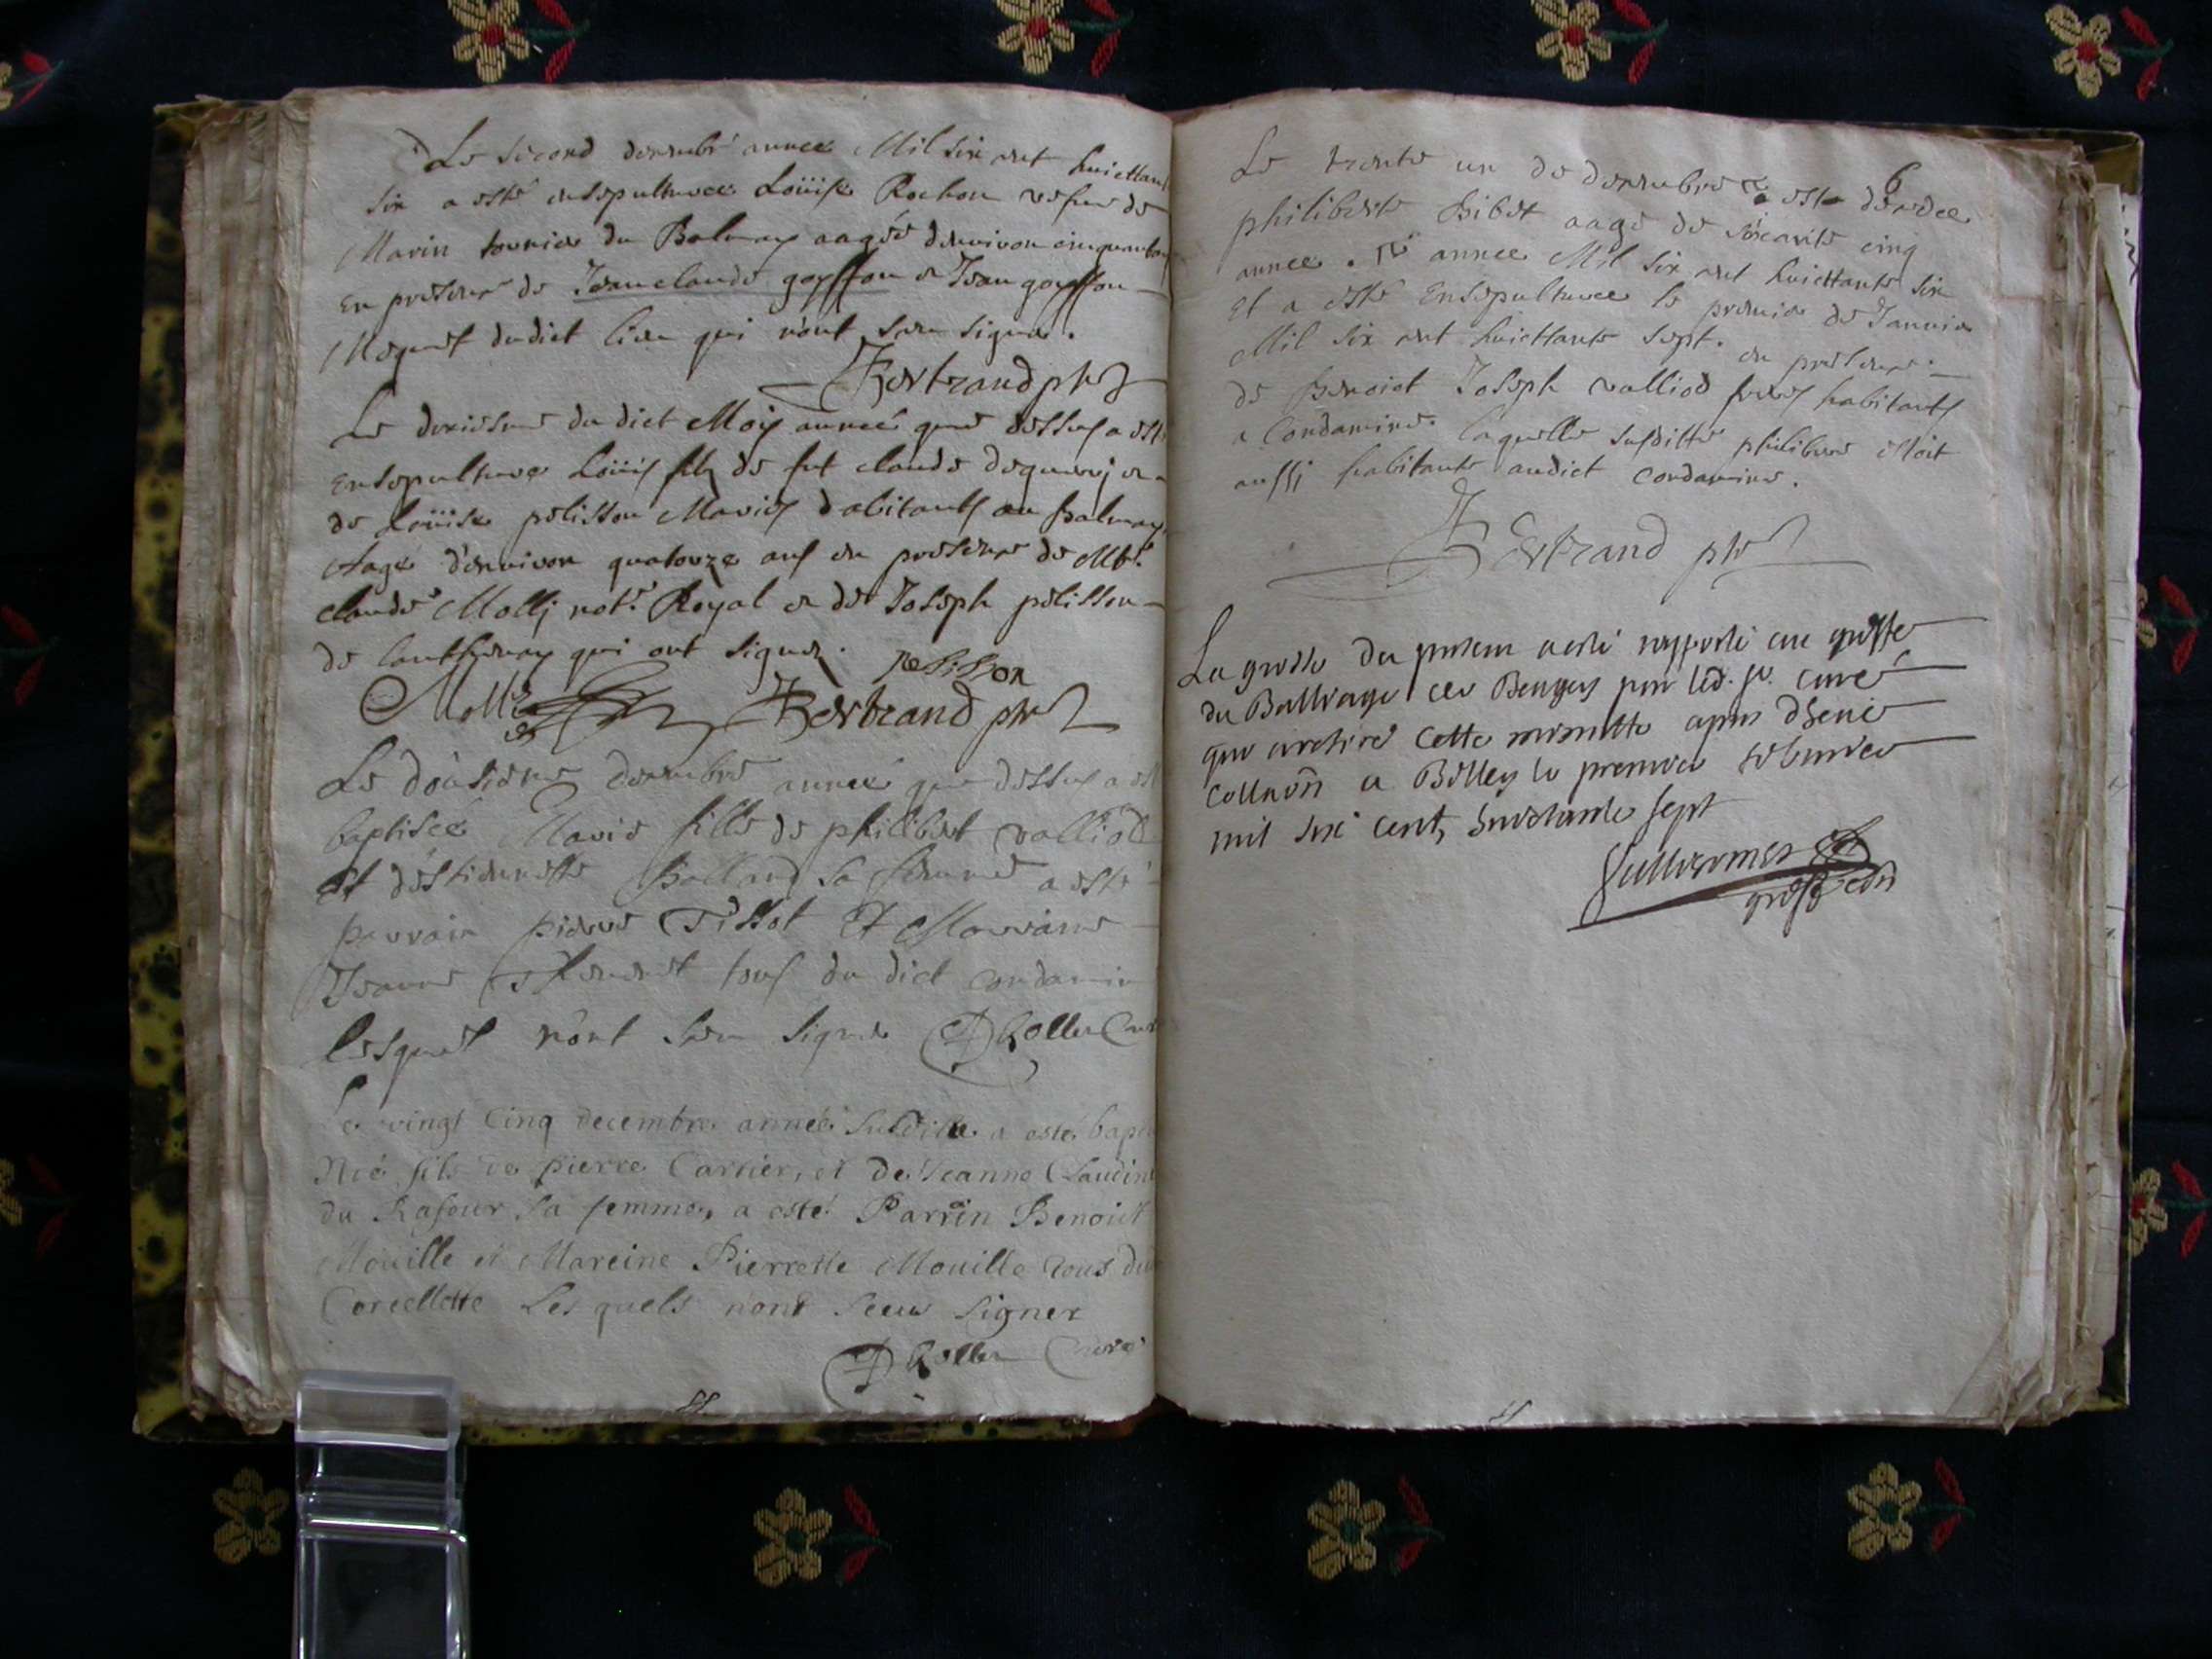 Le second decembre annee Mil six cent huicttante
six a esté ensepulturee Loüise Rochon vefue de
Marin tournier du Balmay aagée denviron cinquante
En presence de Jeanclaude goyffon et Jean goyffon
dudict lieu qui n'ont sceu signer.
Bertrand ptre
Le dixiesme du dict Mois année que dessus a esté
Ensepulture Loüis fils de fut claude et
de Loüise pelisson Mariés habitants au Balmay
Aage d'environ quatorze ans en presence de Mtre
claude Molli notre Royal et de Joseph pelisson
de qui ont signer. pelisson
Molli Bertrand ptre
Le decembre année que dessus a esté
baptisée Marie fille de philibert valliod
et d'estiennette Balland sa femme a esté
parrain pierre Tissot Et Marraine
Jeanne tous du dict condamine
lesquels n'ont sceu signer Rollet Curé
Le vingt cinq decembre année Susditte a esté bapti
fils de pierre Carrier, et de Jeanne Claudine
du Rafour sa femme, a esté Parrin Benoict
Mouille et Mareine Pierrette Mouille tous du
Corcellette Les quels nont sceuu signer
Rollet Curé
6
Le trente un de decembre est decedee
philiberte Bibet aage de soixante cinq
annee. annee Mil six cent huicttante six
Et a esté Ensepulturee le premier de Janvier
Mil six cent huicttante sept. en presence
de Benoict Joseph valliod freres habitants
a Condamine. laquelle susditte philiberte estoit
aussi habitante audict condamine.
Bertrand ptre
La grosse du present a esté rapporté au greffe
du Balliage de Bengey par led. sr. curé
qui a retiré cette minutte apres
collaõn a Belley le premier
mil six cent, huictante sept
Guillermet